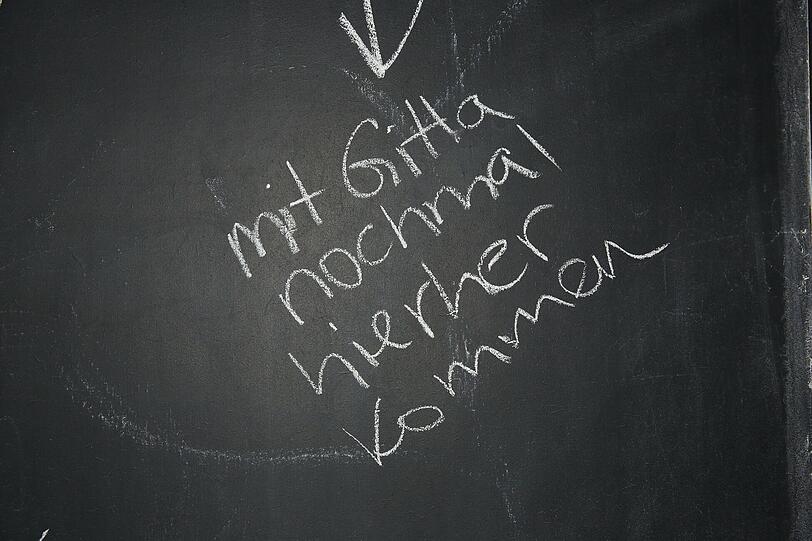 mit Gitta
nochmal
hierher
kommen